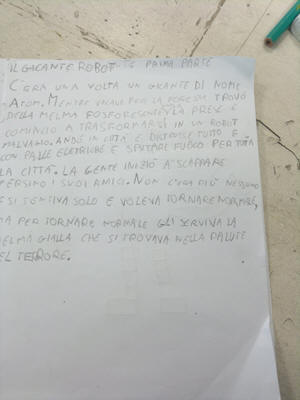 IL GIGANTE ROBOT- PRIMA PARTE
C'ERA UNA VOLTA UN GIGANTE DI NOME
ATOM. MENTRE PER LA FORESTA TROVÒ
DELLA MELMA FOSFORESCENTE, LA PRESE E
COMINCIÒ A TRASFORMARSI IN UN ROBOT
MALVAGIO. ANDÒ IN CITTÀ E DISTRUSSE TUTTO E
CON PALLE ELETRICHE E SPUTARE FUOCO PER TUTTA
LA CITTÀ. LA GENTE INIZIÒ A SCAPPARE
PERSINO I SUOI AMICI. NON C'ERA PIÙ NESSUNO
E SI SENTIVA SOLO E VOLEVA TORNARE NORMALE,
MA PER TORNARE NORMALE GLI SERVIVA LA
MELMA GIALLA CHE SI TROVAVA NELLA PALUDE
DEL TERRORE.